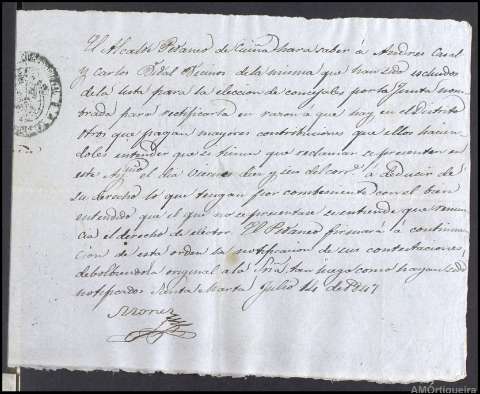 El Alcalde Pedaneo de Cuiña hara saber à Andres Casal
y Carlos Vidal Vecinos de la misma que han sido escluidos
de la lista para la eleccion de concejales por la Junta nom
brada para rectificarla en razon à que hay en el Distrito
otros que pagan mayores contribuciones que ellos hacien
doles entender que si tienen que reclamar se presenten en
este Aytmo el dia diez y seis del corr.e a deducir de
su derecho lo que tengan por combeniente con el bien
entendido que el que no se presentase se entiende que renun
cia el derecho de elector. El Pedaneo firmará a continua
cion de esta orden la notificacion de sus contestaciones,
debolbiendola original a la Sria. tan luego como hayan sido
notificados Santa Marta Julio 14 de 1847
AMOrtigueira